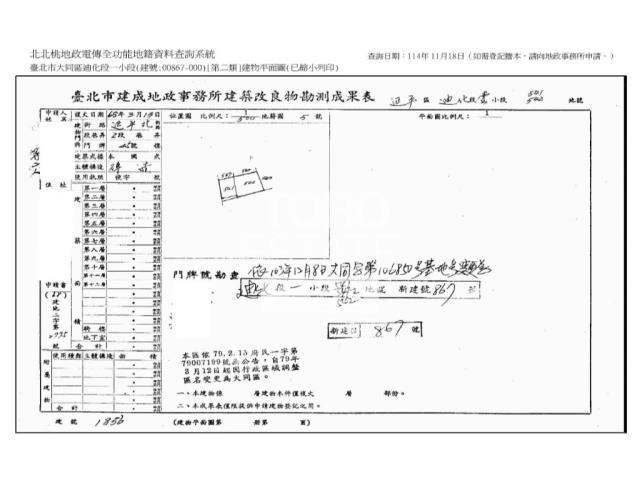 北北桃地政電傳全功能地籍資料查詢系統
查詢日期：114年11月18日（如需登記謄本，請向地政事務所申請。）
臺北市大同區迪化段一小段(建號:00867-000)[第二類]建物平面圖(已縮小列印)
臺北市建成地政事務所建築改良物勘測成果表
延平 區 迪化段 壹 小段 地號
申請人
複丈日期
位置圖 比例尺：1/500 地籍圖 5 號
平面圖比例尺：1
2段 巷 弄
建築式樣 本國式
主體構造
使用執照 使字 號
住址
第一層
第二層
第三層
第四層
第五層
第六層
第七層
第八層
第九層
第十層
第十一層
第十二層
騎樓
地下室
合計
建築面積
申請書
建地二字第
號
使用種類 主體構造 面積
附屬建物
合計
門牌號勘查 依103年12月8日大同字第106850號基地號變更
迪化 段 一 小段 地號 新建號 867 號
新建號 867 號
本區依79.2.13府民一字第
79007199號公告，自79年
3月12日起因行政區域調整
區名變更為大同區。
一、本建物係 層建物本件僅複丈 層 部份。
二、本成果表僅限提供申請建物登記之用。
建號 1856
(建物平面圖第 冊第 頁)